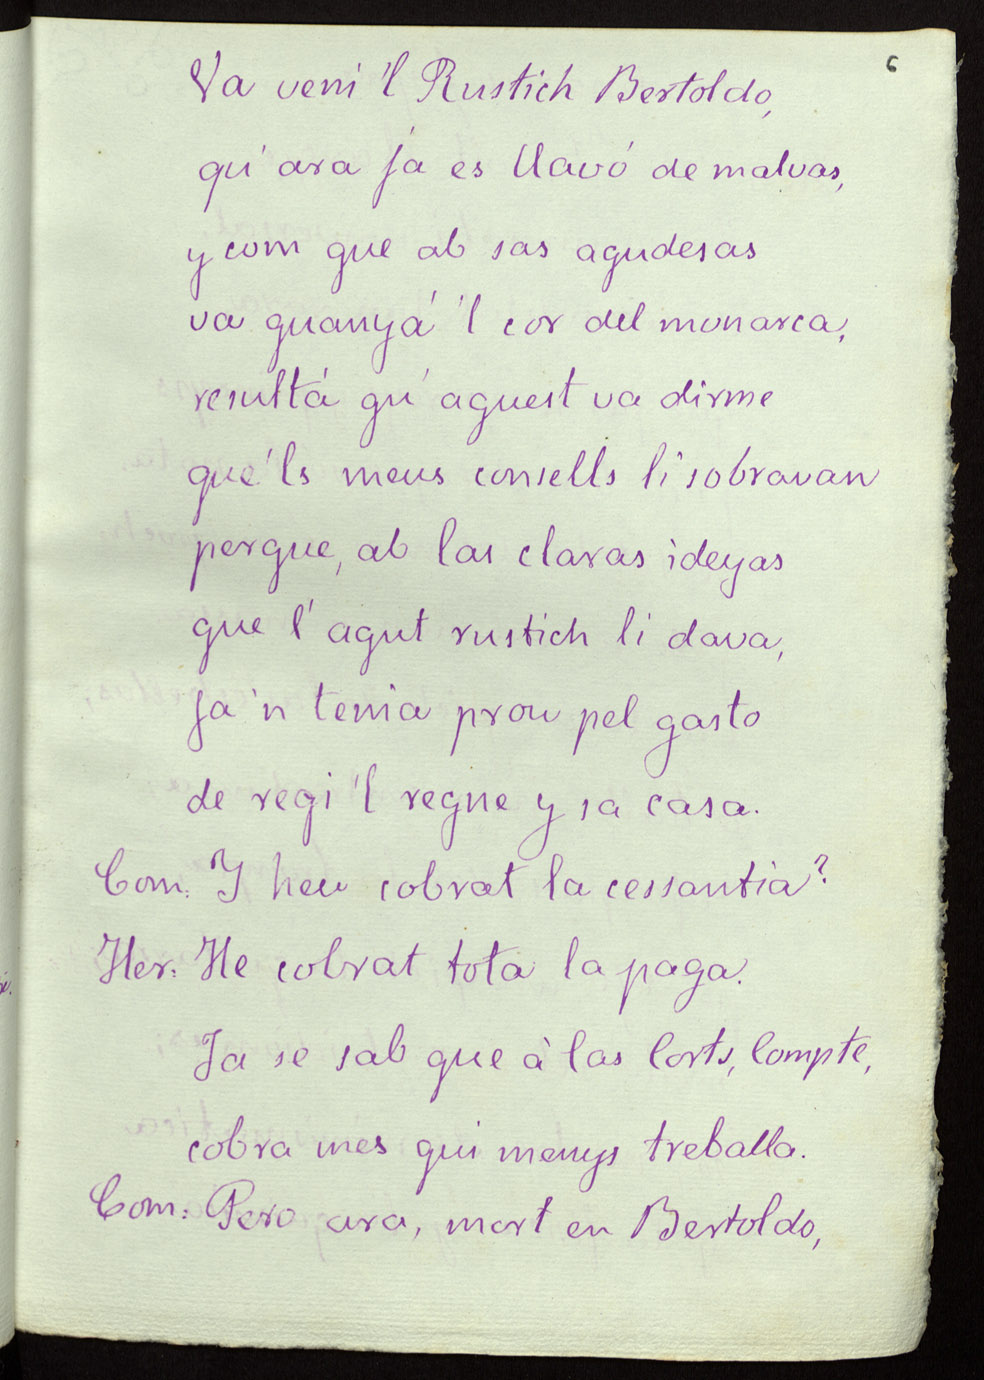 6
Va veni 'l Rustich Bertoldo,
qu' ara ja es llavó de malvas,
y com que ab sas agudesas
va guanyá 'l cor del monarca,
resultá qu' aquest va dirme
que 'ls meus consells li sobravan
perque, ab las claras ideyas
que l' agut rustich li dava,
ja 'n tenia prou pel gasto
de regi 'l regne y sa casa.
Com: Y heu cobrat la cessantia?
Her: He cobrat tota la paga.
Ja se sab que à las Corts, Compte,
cobra mes qui menys treballa.
Com: Pero ara, mort en Bertoldo,